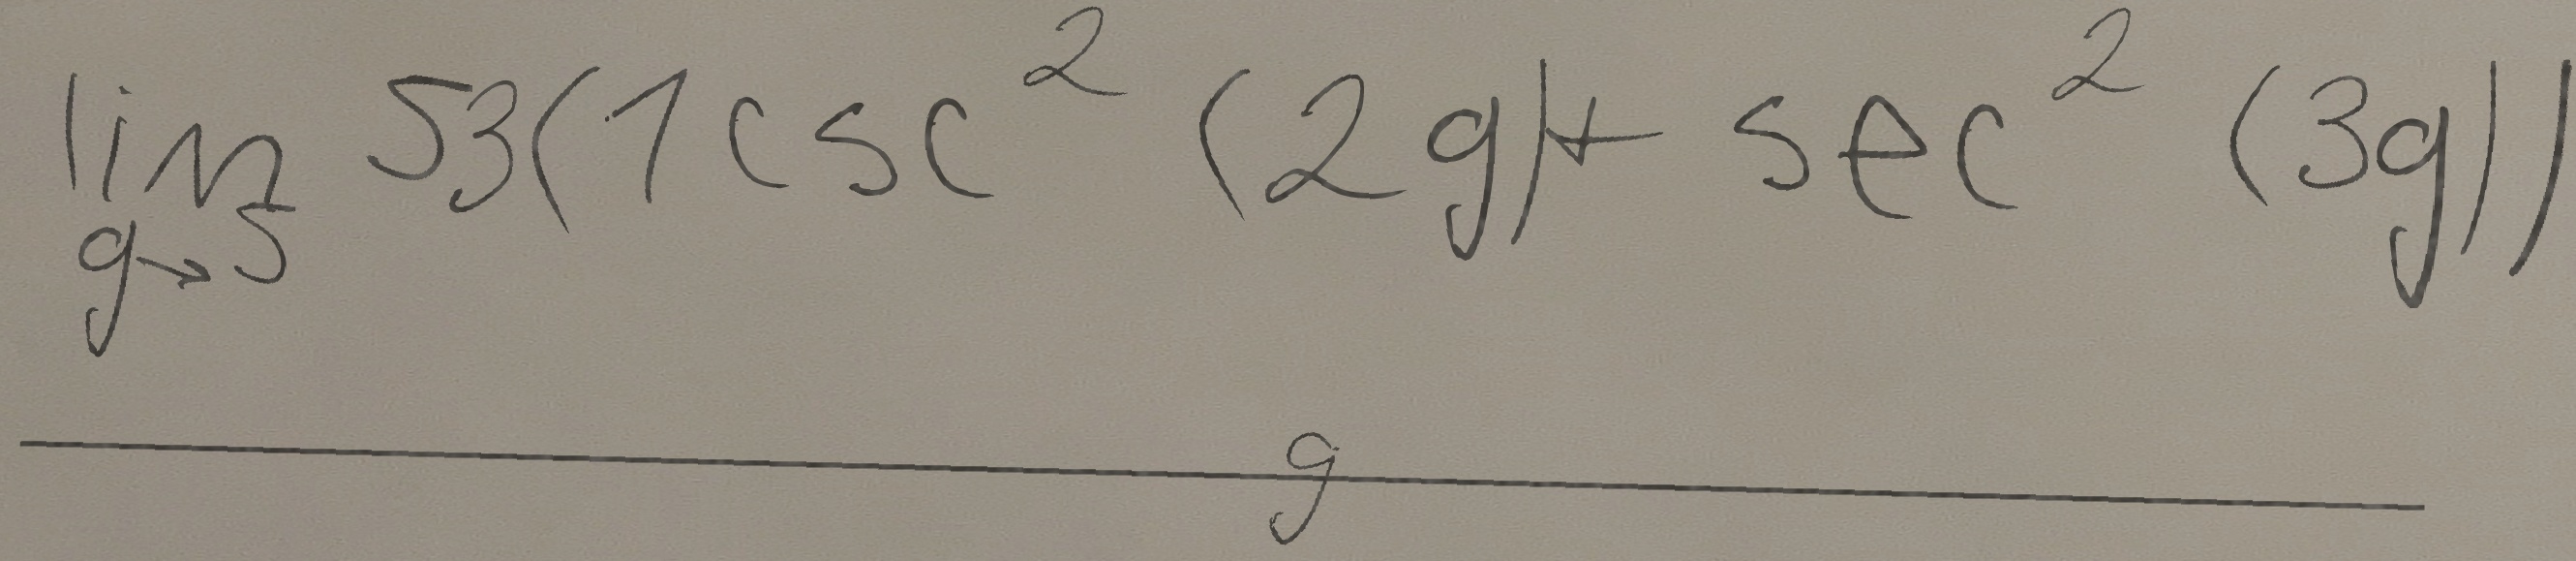 lim 53(1csc² (2g)+ sec² (3g))
g→5
g